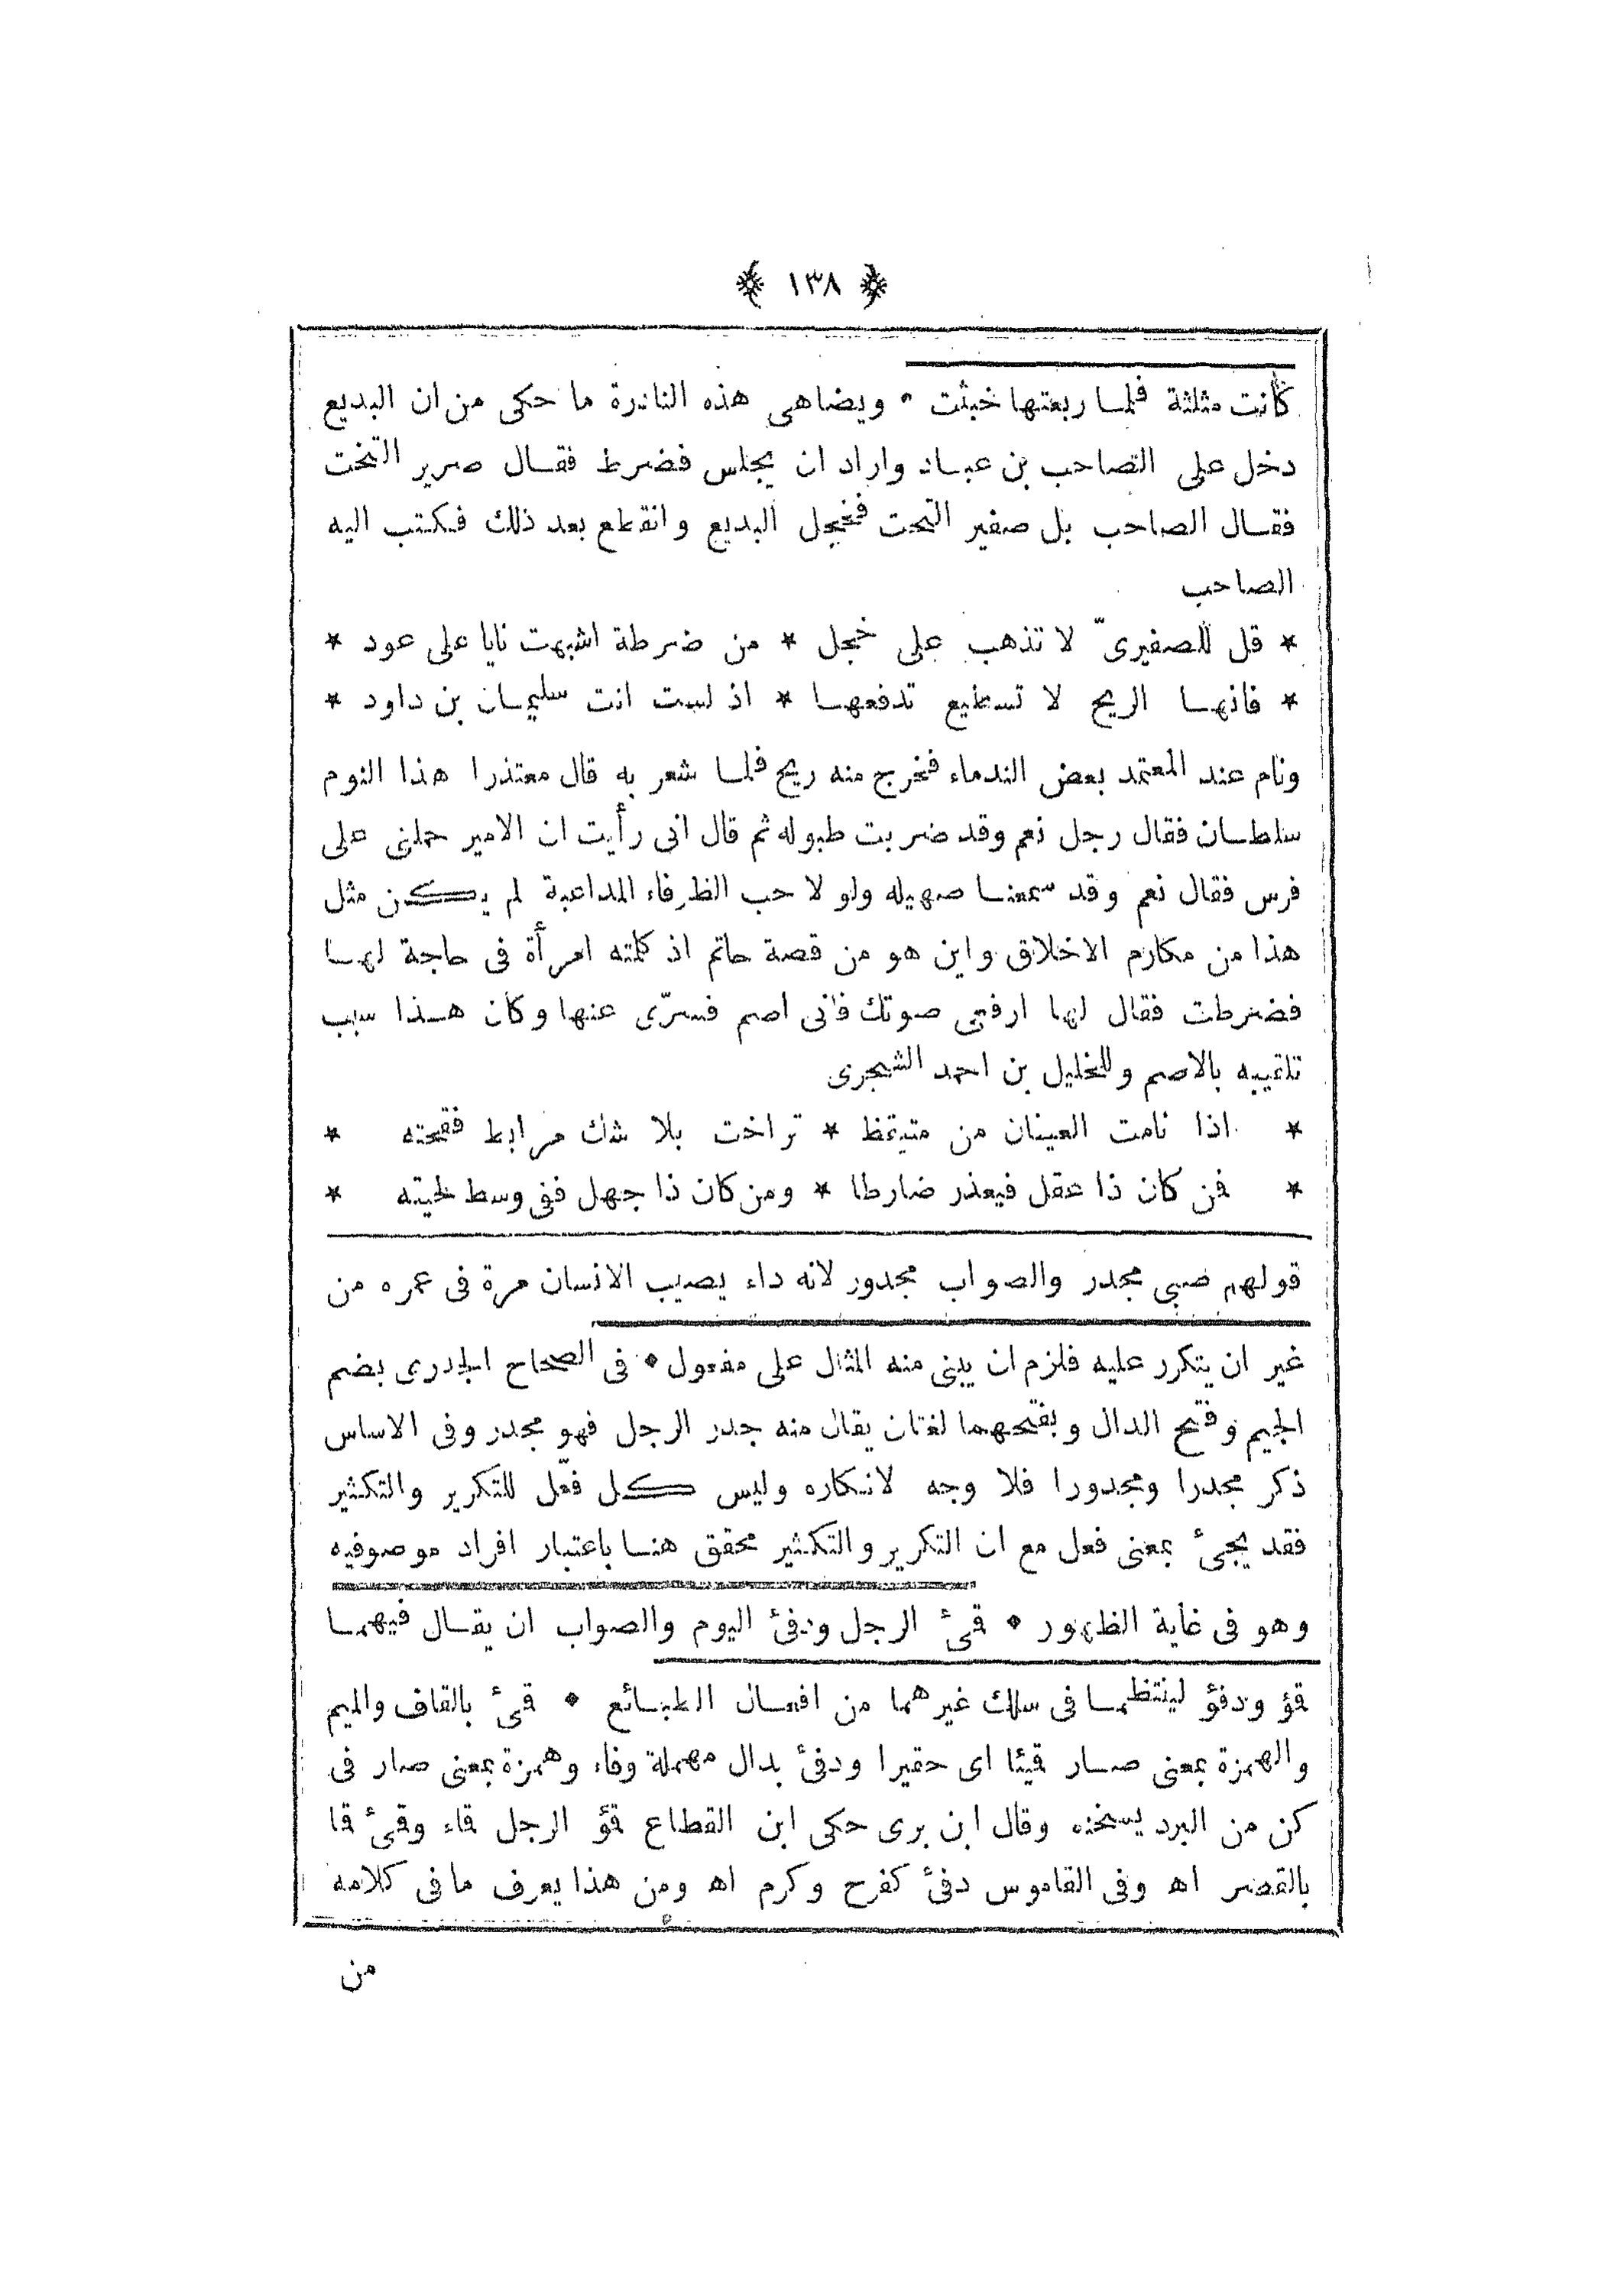 ﴿ ١٣٨ ﴾
كأنت مثلثة فلما ربعتها خبثت * ويضاهى هذه النادرة ما حكى من ان البديع
دخل على الصاحب بن عباد واراد ان يجلس فضرط فقال صرير التخت
فقال الصاحب بل صفير التحت فخجل البديع وانقطع بعد ذلك فكتب اليه
الصاحب
* قل للصفيرىّ لا تذهب على خجل * من ضرطة اشبهت نايا على عود *
* فانها الريح لا تسطيع تدفعها * اذ لست انت سليمان بن داود *
ونام عند المعتمد بعض الندماء فخرج منه ريح فلما شعر به قال معتذرا هذا النوم
سلطان فقال رجل نعم وقد ضربت طبوله ثم قال انى رأيت ان الامير حملنى على
فرس فقال نعم وقد سمعنا صهيله ولو لا حب الظرفاء المداعبة لم يكن مثل
هذا من مكارم الاخلاق واين هو من قصة حاتم اذ كلمته امرأة فى حاجة لها
فضرطت فقال لها ارفعى صوتك فانى اصم فسرّى عنها وكان هذا سبب
تلقيبه بالاصم وللخليل بن احمد الشجرى
* اذا نامت العينان من متيقظ * تراخت بلا شك مرابط فقحته *
* فمن كان ذا عقل فيعذر ضارطا * ومن كان ذا جهل ففى وسط لحيته *
قولهم صبى مجدر والصواب مجدور لانه داء يصيب الانسان مرة فى عمره من
غير ان يتكرر عليه فلزم ان يبنى منه المثال على مفعول * فى الصحاح الجدرى بضم
الجيم وفتح الدال وبفتحهما لغتان يقال منه جدر الرجل فهو مجدر وفى الاساس
ذكر مجدرا ومجدورا فلا وجه لانكاره وليس كل فعّل للتكرير والتكثير
فقد يجىء بمعنى فعل مع ان التكرير والتكثير محقق هنا باعتبار افراد موصوفيه
وهو فى غاية الظهور * قمىء الرجل ودفئ اليوم والصواب ان يقال فيهما
قمؤ ودفؤ لينتظما فى سلك غيرهما من افعال الطبائع * قمىء بالقاف والميم
والهمزة بمعنى صار قميئا اى حقيرا ودفئ بدال مهملة وفاء وهمزة بمعنى صار فى
كن من البرد يسخنه وقال ابن برى حكى ابن القطاع قمؤ الرجل قماء وقمىء قما
بالقصر اه وفى القاموس دفئ كفرح وكرم اه ومن هذا يعرف ما فى كلامه
من